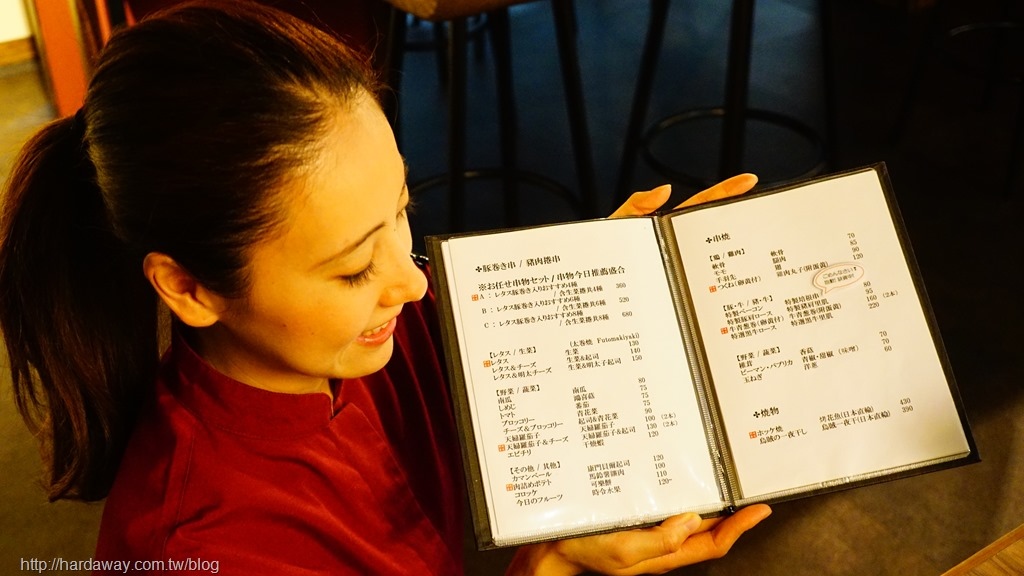 ✤豚巻き串 / 豬肉捲串
※お任せ串物セット/串物今日推薦盛合
A:レタス豚巻き入りおすすめ4種
/含生菜捲共4種 360
B:レタス豚巻き入りおすすめ6種
/含生菜捲共6種 520
C:レタス豚巻き入りおすすめ8種
/含生菜捲共8種 680
【レタス / 生菜】 (太巻燒 Futomakiyaki)
レタス 生菜 130
レタス&チーズ 生菜&起司 140
レタス&明太チーズ 生菜&明太子起司 150
【野菜 / 蔬菜】
南瓜 南瓜 80
しめじ 鴻喜菇 75
トマト 番茄 75
ブロッコリー 青花菜 75
チーズ&ブロッコリー 起司&青花菜 90
天婦羅茄子 天婦羅茄子 100 (2本)
天婦羅茄子&チーズ 天婦羅茄子&起司 130
エビチリ 干燒蝦 120
【その他 / 其他】
カマンベール 康門貝爾起司 120
肉詰めポテト 馬鈴薯鑲肉 100
コロッケ 可樂餅 110
今日のフルーツ 時令水果 120~
✤串焼
【鶏 / 雞肉】
軟骨 軟骨 70
モモ 腿肉 85
手羽先 翅 90
つくね(卵黄付) 雞肉丸子(附蛋黃) 120
ごめんなさい!
【豚・牛 / 豬・牛】
特製ベーコン 特製培根串 80
特製豚肩ロース 特製豬肩里肌 95
牛青葱巻(卵黄付) 牛青蔥卷(附蛋黃) 160 (2本)
特選黒牛ロース 特選黑牛里肌 220
【野菜 / 蔬菜】
椎茸 香菇 70
ピーマン・パプリカ 青椒・甜椒 (味噌) 70
玉ねぎ 洋蔥 60
✤焼物
ホッケ焼 烤花魚(日本直輸) 430
烏賊の一夜干し 烏賊一夜干(日本直輸) 390
http://hardaway.com.tw/blog